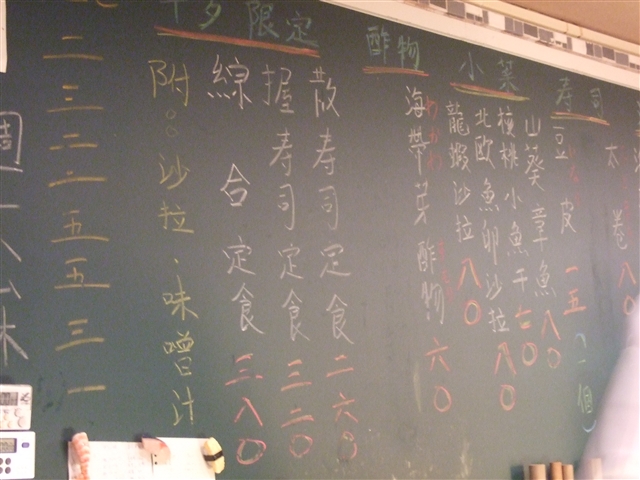 寿司
太卷 八〇
豆皮 一五 (一個)
小菜
山葵章魚 八〇
核桃小魚干
北欧魚卵沙拉 八〇
龍蝦沙拉 八〇
酢物
海帶芽酢物 六〇
限定
散寿司定食 二六〇
握寿司定食 三二〇
綜合定食 三八〇
附:沙拉、味噌汁
二三二一五五三一
週一公休